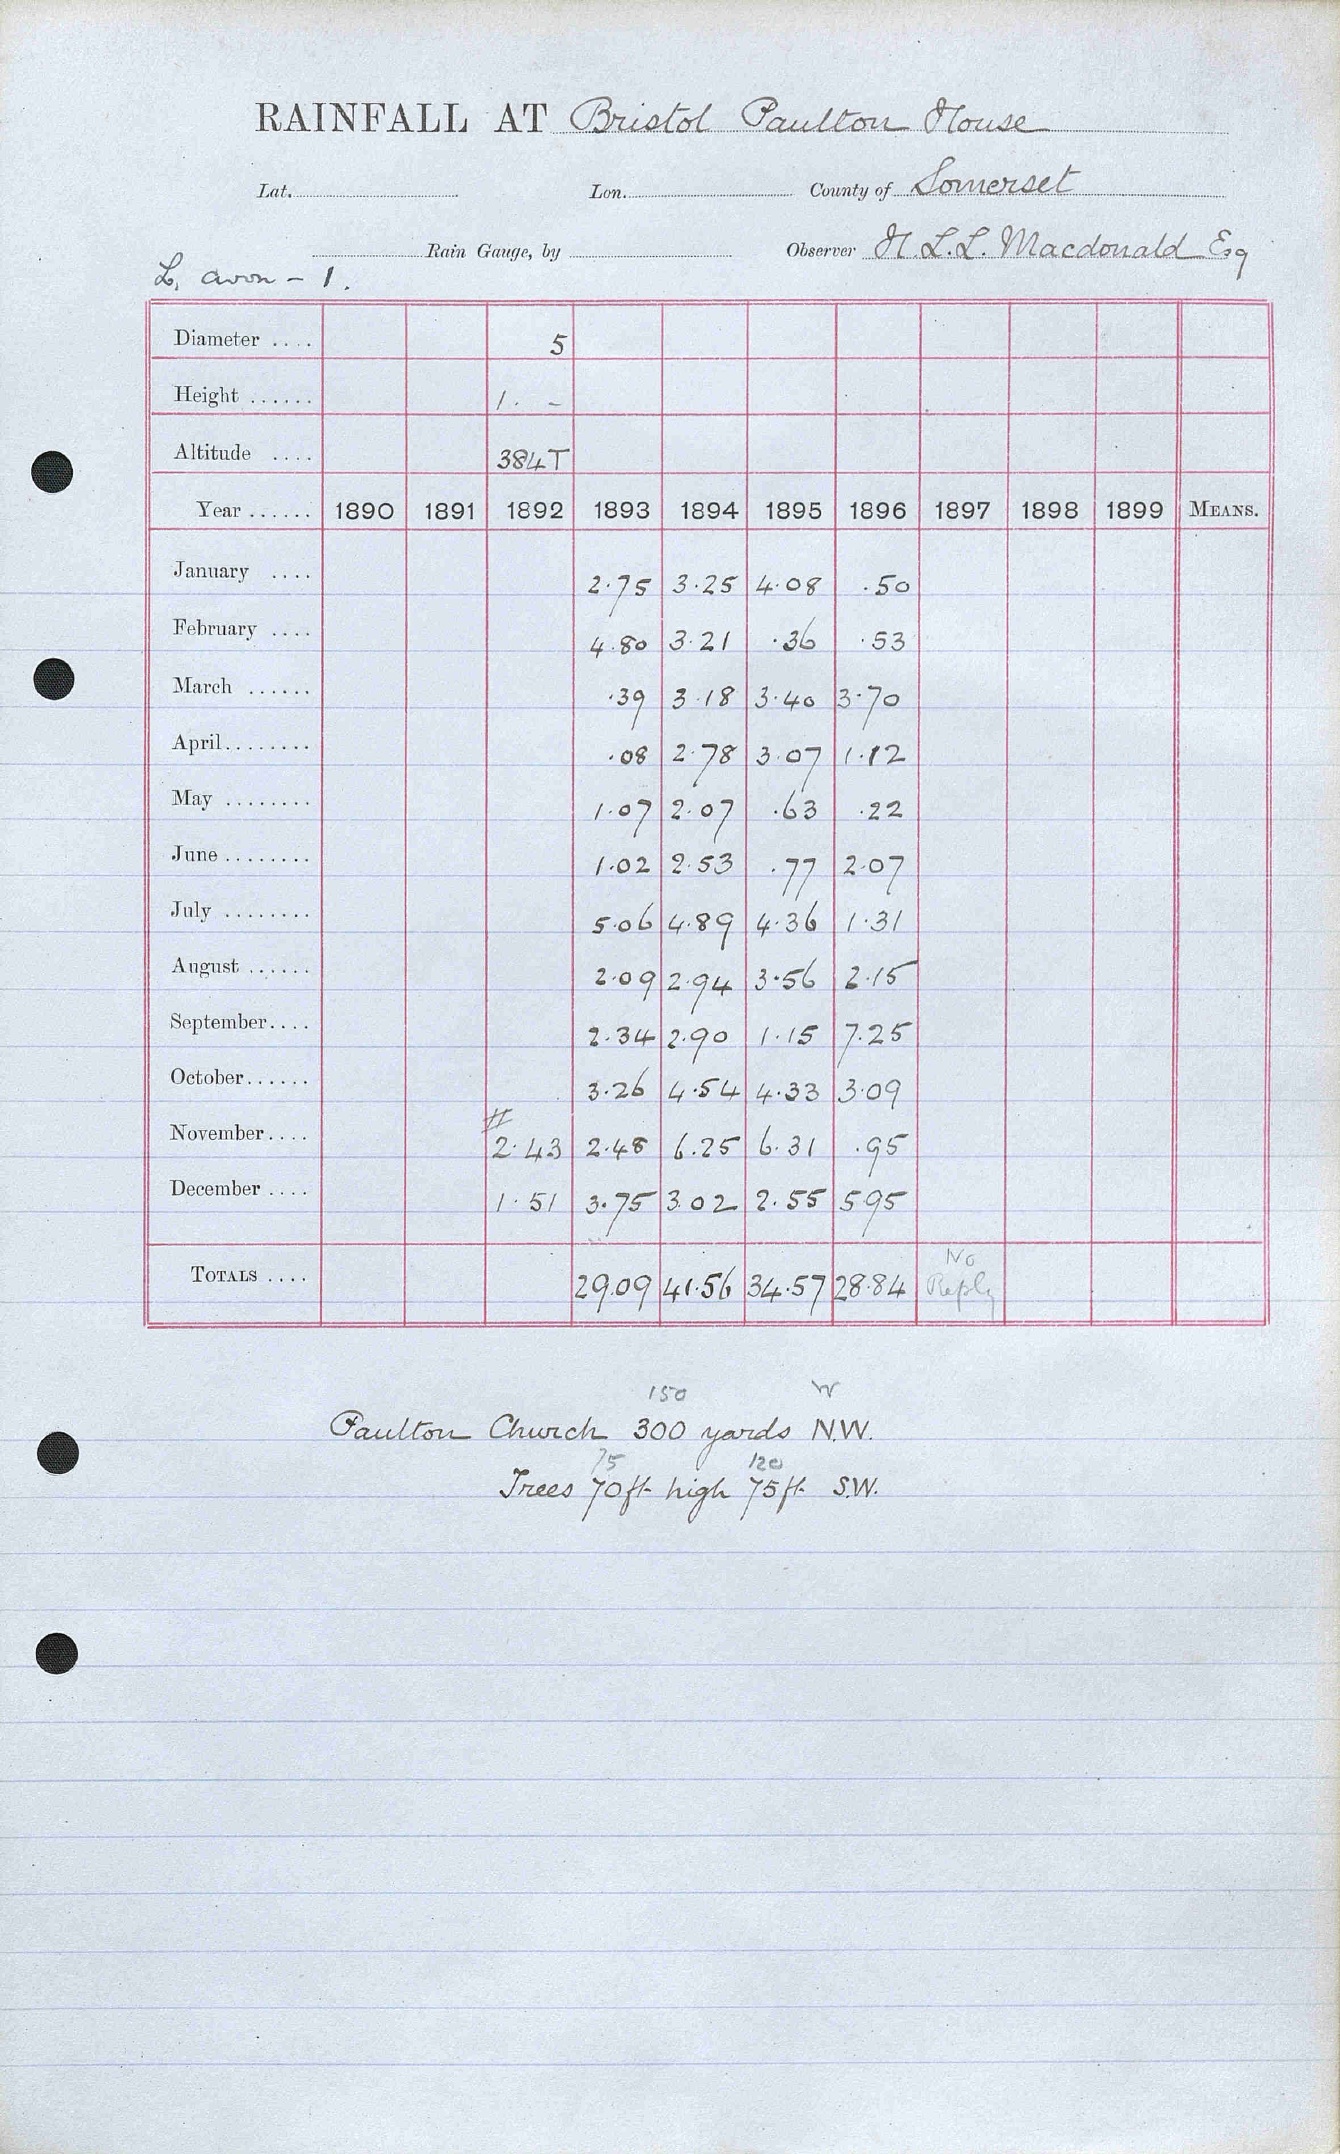 RAINFALL AT Bristol Paulton House
Lat. Lon. County of Somerset
Rain Gauge, by Observer H L.L. Macdonald Esq
L. Avon - 1.
Diameter .... 5
Height ...... 1. -
Altitude .... 384T
Year ...... 1890 1891 1892 1893 1894 1895 1896 1897 1898 1899 MEANS.
January .... 2.75 3.25 4.08 .50
February .... 4.80 3.21 .36 .53
March ...... .39 3.18 3.40 3.70
April........ .08 2.78 3.07 1.12
May ........ 1.07 2.07 .63 .22
June ........ 1.02 2.53 .77 2.07
July ........ 5.06 4.89 4.36 1.31
August ...... 2.09 2.94 3.56 2.15
September.... 2.34 2.90 1.15 7.25
October...... 3.26 4.54 4.33 3.09
#
November.... 2.43 2.48 6.25 6.31 .95
December .... 1.51 3.75 3.02 2.55 5.95
No
TOTALS .... 29.09 41.56 34.57 28.84 Reply
150 W
Paulton Church 300 yards N.W.
75 120
Trees 70ft high 75ft S.W.